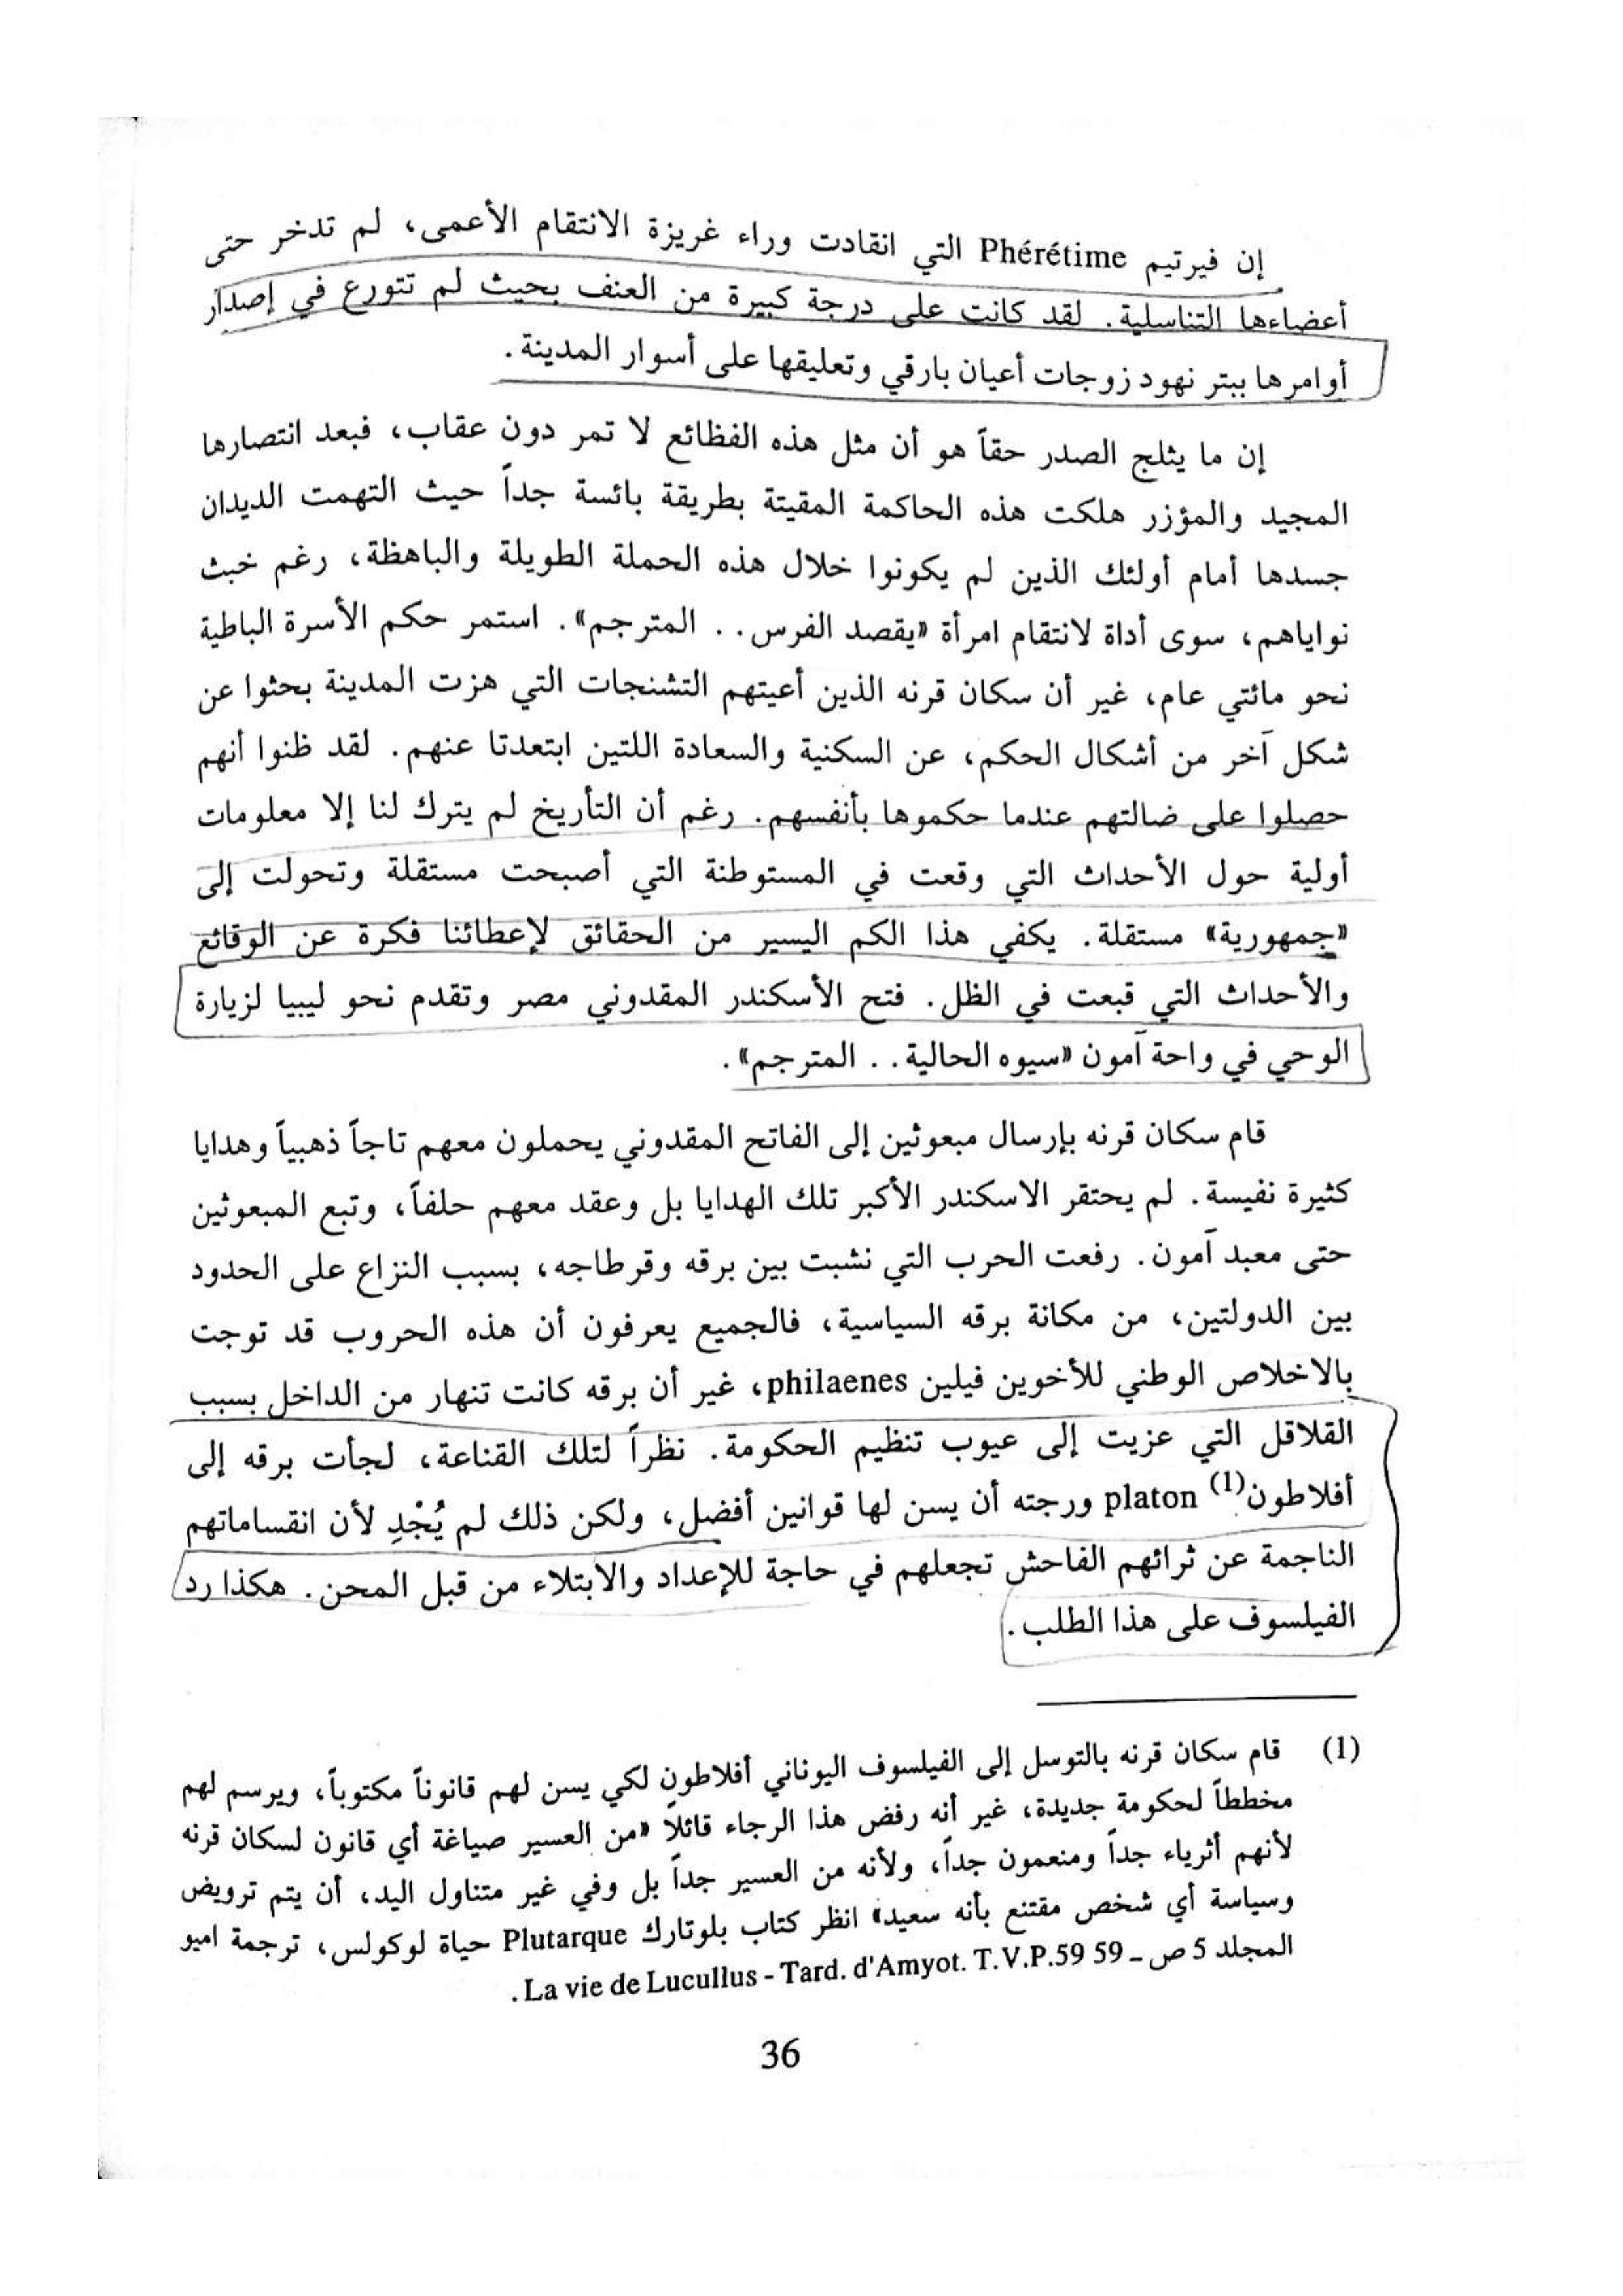 إن فيرتيم Phérétime التي انقادت وراء غريزة الانتقام الأعمى، لم تدخر حتى
أعضاءها التناسلية. لقد كانت على درجة كبيرة من العنف بحيث لم تتورع في إصدار
أوامرها ببتر نهود زوجات أعيان بارقي وتعليقها على أسوار المدينة.
إن ما يثلج الصدر حقاً هو أن مثل هذه الفظائع لا تمر دون عقاب، فبعد انتصارها
المجيد والمؤزر هلكت هذه الحاكمة المقيتة بطريقة بائسة جداً حيث التهمت الديدان
جسدها أمام أولئك الذين لم يكونوا خلال هذه الحملة الطويلة والباهظة، رغم خبث
نواياهم، سوى أداة لانتقام امرأة «يقصد الفرس.. المترجم». استمر حكم الأسرة الباطية
نحو مائتي عام، غير أن سكان قرنه الذين أعيتهم التشنجات التي هزت المدينة بحثوا عن
شكل آخر من أشكال الحكم، عن السكنية والسعادة اللتين ابتعدتا عنهم. لقد ظنوا أنهم
حصلوا على ضالتهم عندما حكموها بأنفسهم. رغم أن التأريخ لم يترك لنا إلا معلومات
أولية حول الأحداث التي وقعت في المستوطنة التي أصبحت مستقلة وتحولت إلى
«جمهورية» مستقلة. يكفي هذا الكم اليسير من الحقائق لإعطائنا فكرة عن الوقائع
والأحداث التي قبعت في الظل. فتح الأسكندر المقدوني مصر وتقدم نحو ليبيا لزيارة
الوحي في واحة آمون «سيوه الحالية.. المترجم».
قام سكان قرنه بإرسال مبعوثين إلى الفاتح المقدوني يحملون معهم تاجاً ذهبياً وهدايا
كثيرة نفيسة. لم يحتقر الاسكندر الأكبر تلك الهدايا بل وعقد معهم حلفاً، وتبع المبعوثين
حتى معبد آمون. رفعت الحرب التي نشبت بين برقه وقرطاجه، بسبب النزاع على الحدود
بين الدولتين، من مكانة برقه السياسية، فالجميع يعرفون أن هذه الحروب قد توجت
بالاخلاص الوطني للأخوين فيلين philaenes، غير أن برقه كانت تنهار من الداخل بسبب
القلاقل التي عزيت إلى عيوب تنظيم الحكومة. نظراً لتلك القناعة، لجأت برقه إلى
أفلاطون(1) platon ورجته أن يسن لها قوانين أفضل، ولكن ذلك لم يُجْدِ لأن انقساماتهم
الناجمة عن ثرائهم الفاحش تجعلهم في حاجة للإعداد والابتلاء من قبل المحن. هكذا رد
الفيلسوف على هذا الطلب.
(1) قام سكان قرنه بالتوسل إلى الفيلسوف اليوناني أفلاطون لكي يسن لهم قانوناً مكتوباً، ويرسم لهم
مخططاً لحكومة جديدة، غير أنه رفض هذا الرجاء قائلاً «من العسير صياغة أي قانون لسكان قرنه
لأنهم أثرياء جداً ومنعمون جداً، ولأنه من العسير جداً بل وفي غير متناول اليد، أن يتم ترويض
وسياسة أي شخص مقتنع بأنه سعيد» انظر كتاب بلوتارك Plutarque حياة لوكولس، ترجمة اميو
المجلد 5 ص - 59 La vie de Lucullus - Tard. d'Amyot. T.V.P.59.
36